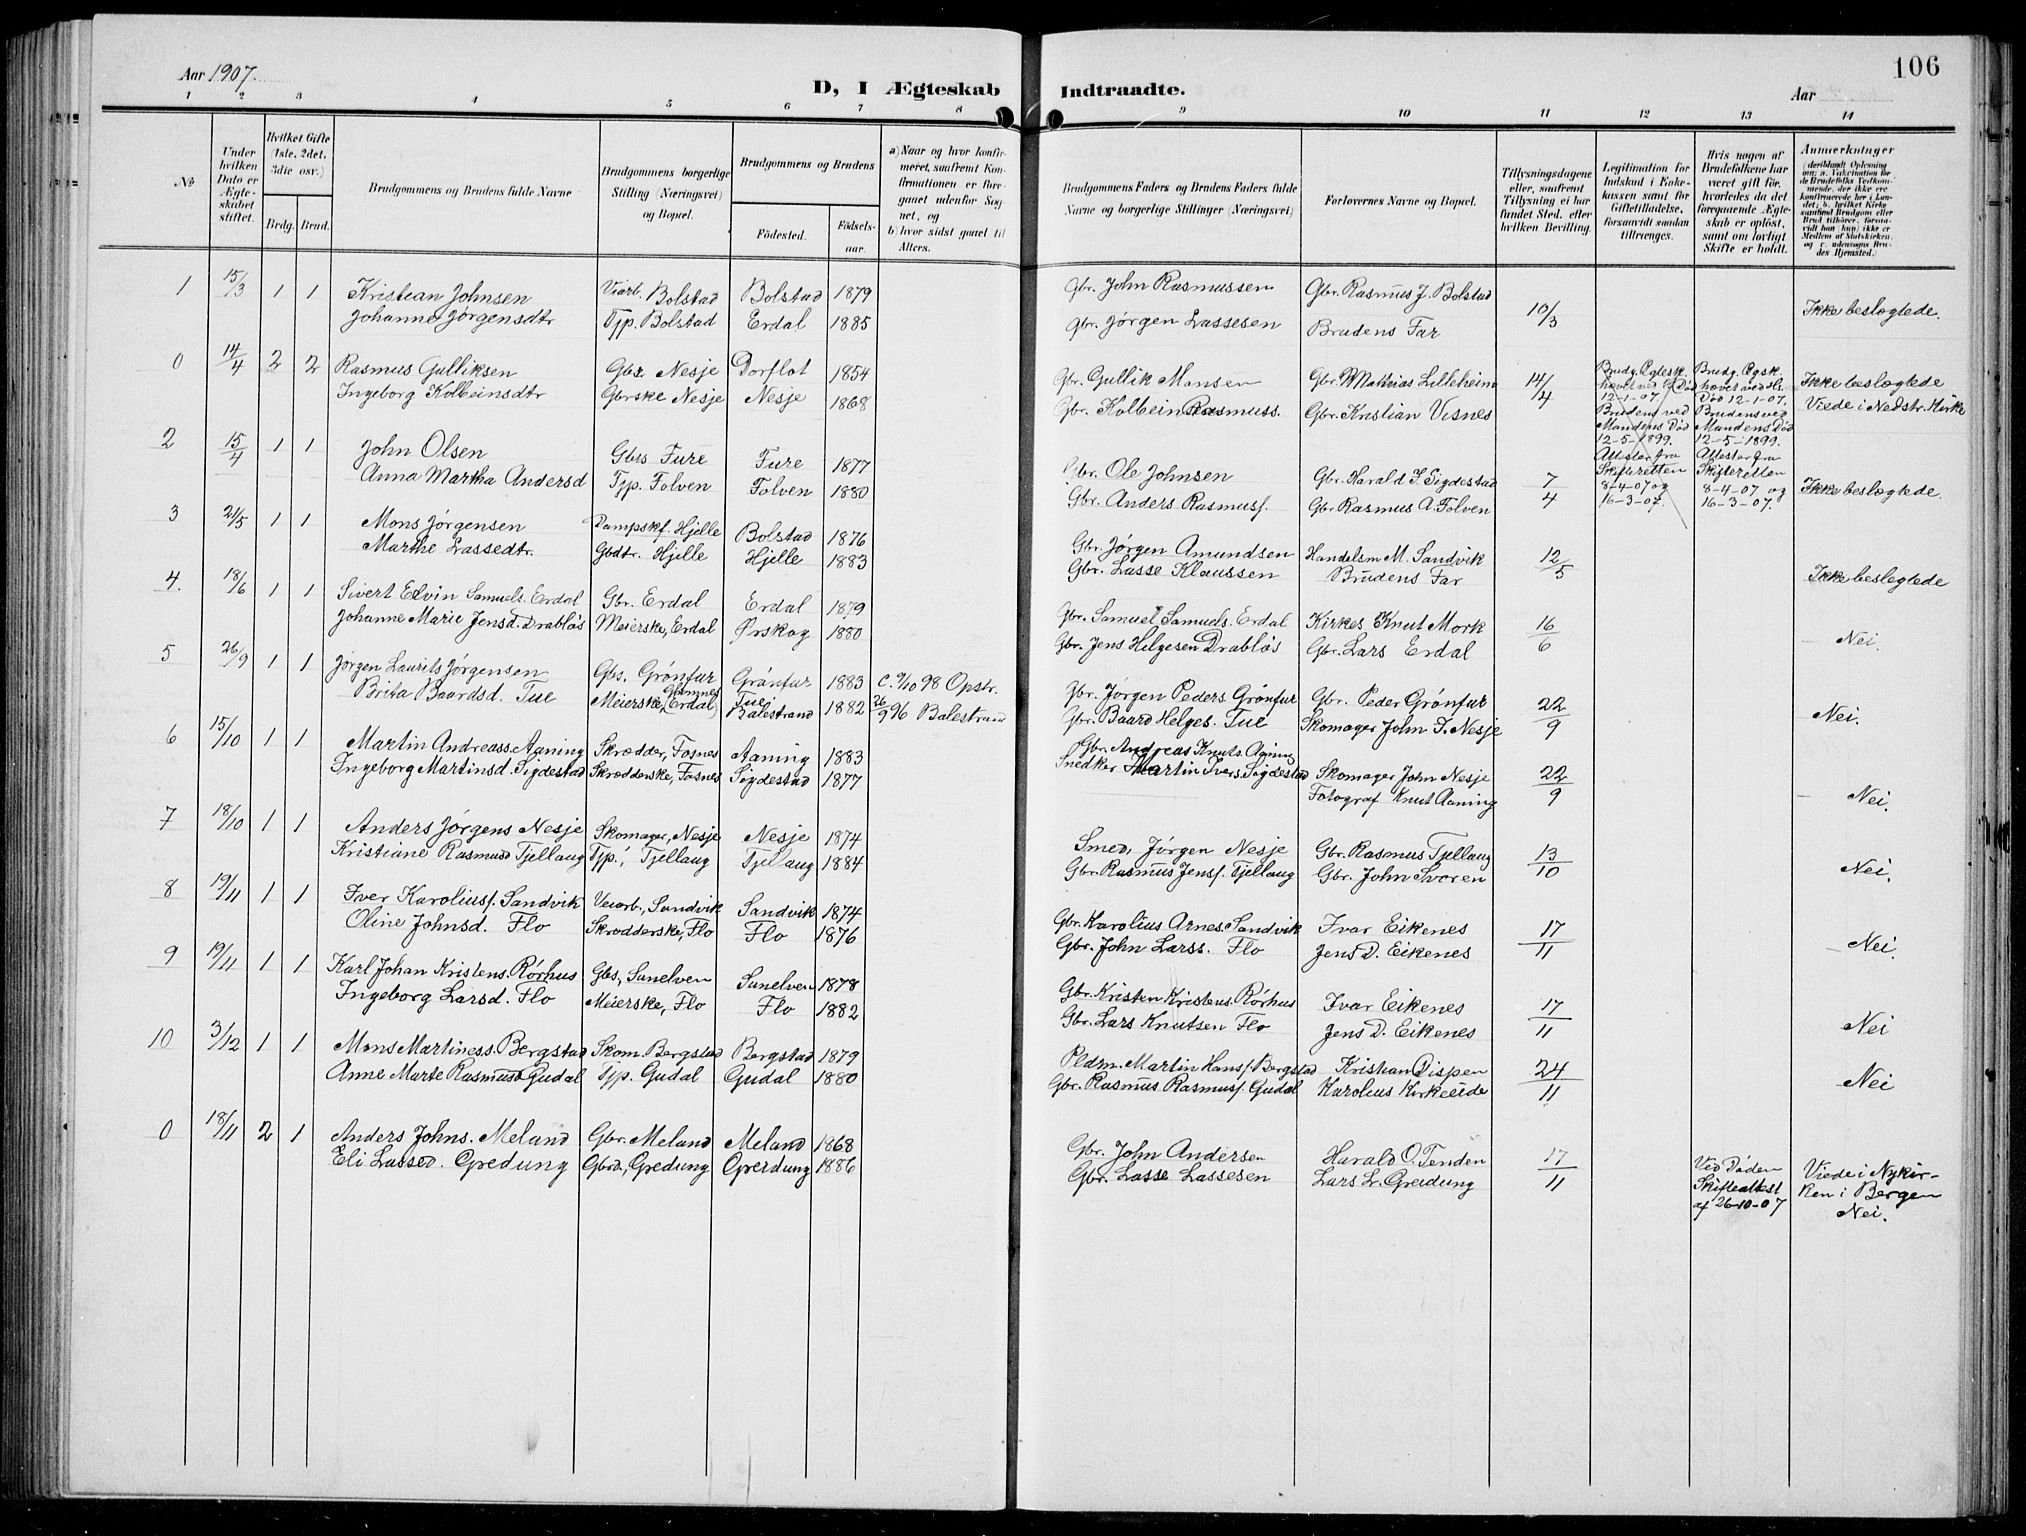 Aar 1907.
D, I Ægteskab Indtraadte.
106
Aar
1 2 3 4 5 6 7 8 9 10 11 12 13 14
No
Under hvilken Dato er Ægteskabet stiftet.
Hvilket Gifte (1ste, 2det, 3die osv.)
Brdg. Brud.
Brudgommens og Brudens fulde Navne
Brudgommens borgerlige Stilling (Næringsvei) og Bopæl.
Brudgommens og Brudens
Fødested.
Fødselsaar.
a) Naar og hvor konfirmeret, saafremt Konfirmationen er foregaaet udenfor Sognet, og
b) hvor sidst gaaet til Alters.
Brudgommens Faders og Brudens Faders fulde Navne og borgerlige Stillinger (Næringsvei)
Forlovernes Navne og Bopæl.
Tillysningsdagene eller, saafremt Tillysning ei har fundet Sted, efter hvilken Bevilling.
Legitimation for Indskud i Enkekassen samt for Giftetilladelse, forsaavidt saadan tiltrænges.
Hvis nogen af Brudefolkene har været gift før, hvorledes da det foregaaende Ægteskab er opløst, samt om lovligt Skifte er holdt.
Anmerkninger
1 15/3 1 1 Kristian Johnsen Viarb. Bolstad Bolstad 1879 Gbr. John Rasmussen Gbr. Rasmus J. Bolstad 10/3 Ikke beslegtede.
Johanne Jørgensdtr Tjp. Bolstad Erdal 1885 Gbr. Jørgen Lassesen Brudens Far
0 14/4 2 2 Rasmus Gulliksen Gbr. Nesje Dorflot 1854 Gbr. Gullik Monsen Gbr. Mathias Lilleheim 14/4 Ikke beslegtede
Ingeborg Kolbeinsdtr Gbrske Nesje Nesje 1868 Gbr. Kolbein Rasmuss. Gbr. Kristian Visnes Viede i Nedstr. Kirke
Brudg. Egtesk. hævet ved Død 12-1-07. Brudens ved Mandens Død 12-5-1899. Attester fra Skifteretten 8-4-07 og 16-3-07.
Brudg. Egsk. hævet ved Hs. Død 12-1-07. Brudens ved Mandens Død 12-5-1899. Attester fra Skifteretten 8-4-07 og 16-3-07.
2 15/4 1 1 John Olsen Gbs Fure Fure 1877 Gbr. Ole Johnsen Gbr. Harald I. Sigdestad 7/4 Ikke beslegtede.
Anna Martha Andersd Tjp. Folven Folven 1880 Gbr. Anders Rasmusf. Gbr Rasmus A. Folven
3 21/5 1 1 Mons Jørgensen Dampskf. Hjelle Bolstad 1876 Gbr. Jørgen Amundsen Handelsm M. Sandvik 12/5 Ikke beslegtede
Marthe Lassedtr. Gbdtr. Hjelle Hjelle 1883 Gbr. Lasse Klaussen Brudens Far
4. 18/6 1 1 Sivert Edvin Samuels. Erdal Gbr. Erdal Erdal 1879 Gbr. Samuel Samuels. Erdal Kirkes Knut Mork 16/6 - Nei.
Johanne Marie Jensd. Drabløs Meierske, Erdal Ørskog 1880 Gbr. Jens Helgesen Drabløs Gbr. Lars Erdal
5 26/9 1 1 Jørgen Laurits Jørgensen Gbs, Grønfur Grønfur 1883 C. 9/10 98 Opstr. Gbr. Jørgen Peders Grønfur Gbr. Peder Grønfur 22/9 - Nei.
Brita Baardsd. Tue Meierske, Erdal Tue Balestrand 1882 26/9 96 Balestrand Gbr. Baard Helges. Tue Skomager John J. Nesje
6 15/10 1 1 Martin Andreass. Aaning Skrædder, Fosnes Aaning 1883 Gbr. Andreas Knuts. Aaning Skomager John Nesje 22/9 - Nei.
Ingeborg Martinsd. Sigdestad Skrædderske, Fosnes Sigdestad 1877 Snedker Martin Ivers. Sigdestad Fotograf Knut Aaning
7 18/10 1 1 Anders Jørgens Nesje Skomager, Nesje Nesje 1874 Smed, Jørgen Nesje Gbr. Rasmus Tjellaug 13/10 Nei.
Kristiane Rasmusd Tjellaug Tjp., Tjellaug Tjellaug 1884 Gbr. Rasmus Jensf. Tjellaug Gbr. John Svoren
8 19/11 1 1 Iver Karoliusf. Sandvik Veiarb., Sandvik Sandvik 1874 Gbr. Karolius Arnes. Sandvik Ivar Eikenes 17/11 - Nei.
Oline Johnsd. Flo Skrædderske, Flo Flo 1876 Gbr. John Larss. Flo Jens D. Eikenes
9 19/11 1 1 Karl Johan Kristens. Rørhus Gbs, Sunelven Sunelven 1878 Gbr. Kristen Kristens. Rørhus Ivar Eikenes 17/11 Nei
Ingeborg Larsd. Flo Meierske, Flo Flo 1882 Gbr. Lars Knutsen Flo Jens D. Eikenes
10 3/12 1 1 Mons Martiness. Bergstad Skom. Bergstad Bergstad 1879 Pldm. Martin Hansf. Bergstad Kristian Dispen 24/11 - Nei
Anne Marte Rasmusd Gudal Tjp. Gudal Gudal 1880 Gbr. Rasmus Rasmusf. Gudal Karolius Kirkeeide
0 18/11 2 1 Anders Johns. Meland Gbr. Meland Meland 1868 Gbr. John Andersen Harald O. Tenden 17/11 Ved Døden Skifteattest af 26-10-07 Viede i Nykirken i Bergen Nei.
Eli Lassed. Gredung Gbrd., Gredung Grerdung 1886 Gbr. Lasse Lassesen Lars L. Greidung